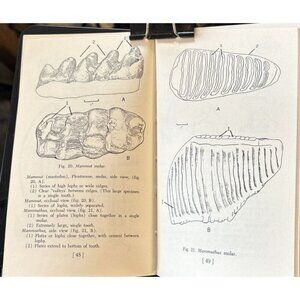 1
2
A
B
Fig. 20. Mammut molar.
Mammut (mastodon), Pleistocene, molar, side view, (fig.
20, A).
(1) Series of high lophs or wide ridges.
(2) Clear "valleys" between ridges. (This large specimen
is a single tooth.)
Mammut, occlusal view (fig. 20, B).
(1) Series of lophs, widely separated.
Mammuthus, occlusal view (fig. 21, A).
(1) Series of plates (lophs) close together in a single
molar.
(2) Extremely large, single tooth.
Mammuthus, side view (fig. 21, B).
(1) Plates or lophs close together, with cement between
lophs.
(2) Plates extend to bottom of tooth.
[48]
1
2
A
B
Fig. 21. Mammuthus molar.
[49]